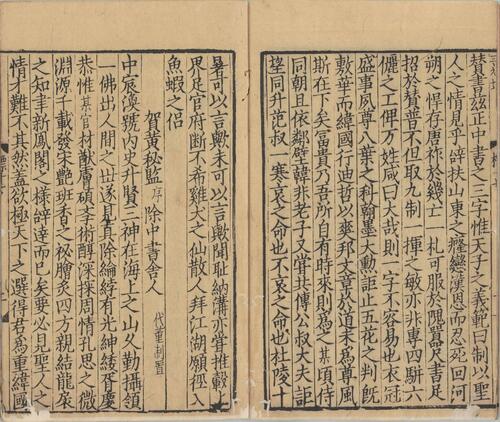 賛書茲正中書之三字惟天子之義制以聖
人之情見乎辭扶山東之癃戀漢恩而忍死回河
朔之悍存唐祚於幾亡一札可服於隗囂尺書足
招於賛普不但取九制一揮之敏亦非專四駢六
儷之工俾万姓咸曰大哉則一字不容易也衣冠
盛事夙尊八葉之科翰墨大勲詎止五花之判旣
敷華而緯國行迪哲以爽邦文章於道未為尊風
斯在下矣富貴乃吾所自有時來則為之某頃侍
同朝且依鄰壁韓非老子又嘗共傳公叔大夫詎
望同升范叔一寒哀之命也不哀之命也杜陵十
暑可以言歟未可以言歟聞耻納溝亦嘗推轂上
界足官府斷不希雞犬之仙散人拜江湖願徑入
魚蝦之侶
賀黄秘監序除中書舍人 代重制置
中宸渙號内史升賢三神在海上之山久勤攝領
一佛出人間之世遂見真除綸綍有光紳緌胥慶
恭惟某官材猷膚碩李術醇深探周情孔思之微
淵源千載發宋艷班香之秘膾炙四方親結龍衮
之知聿新鳳閣之様辭達而已矣要必見聖人之
情才難不其然蓋欲極天下之選得君為重緯國